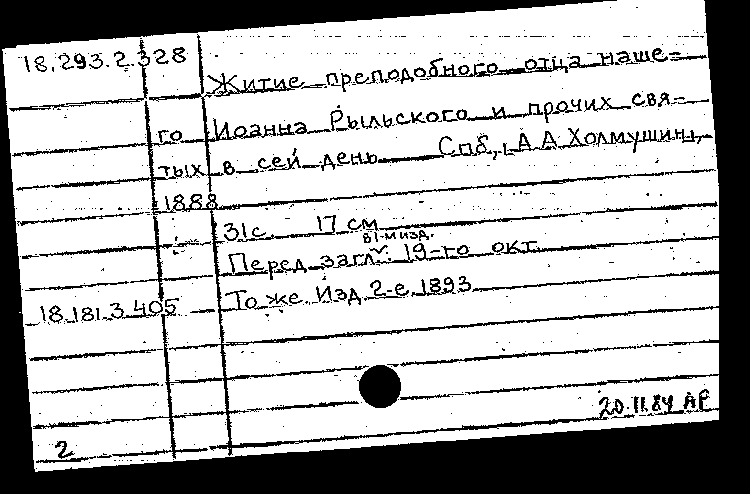 18.293.2.328
Житие преподобного отца наше-
го Иоанна Рыльского и прочих свя-
тых в сей день Спб., А А Холмушин,
1888
31с. 17 см
в 1-м изд.
Перед загл.: 19-го окт.
18.181.3.405 То же. Изд 2-е. 1893
20.11.84 АР
2